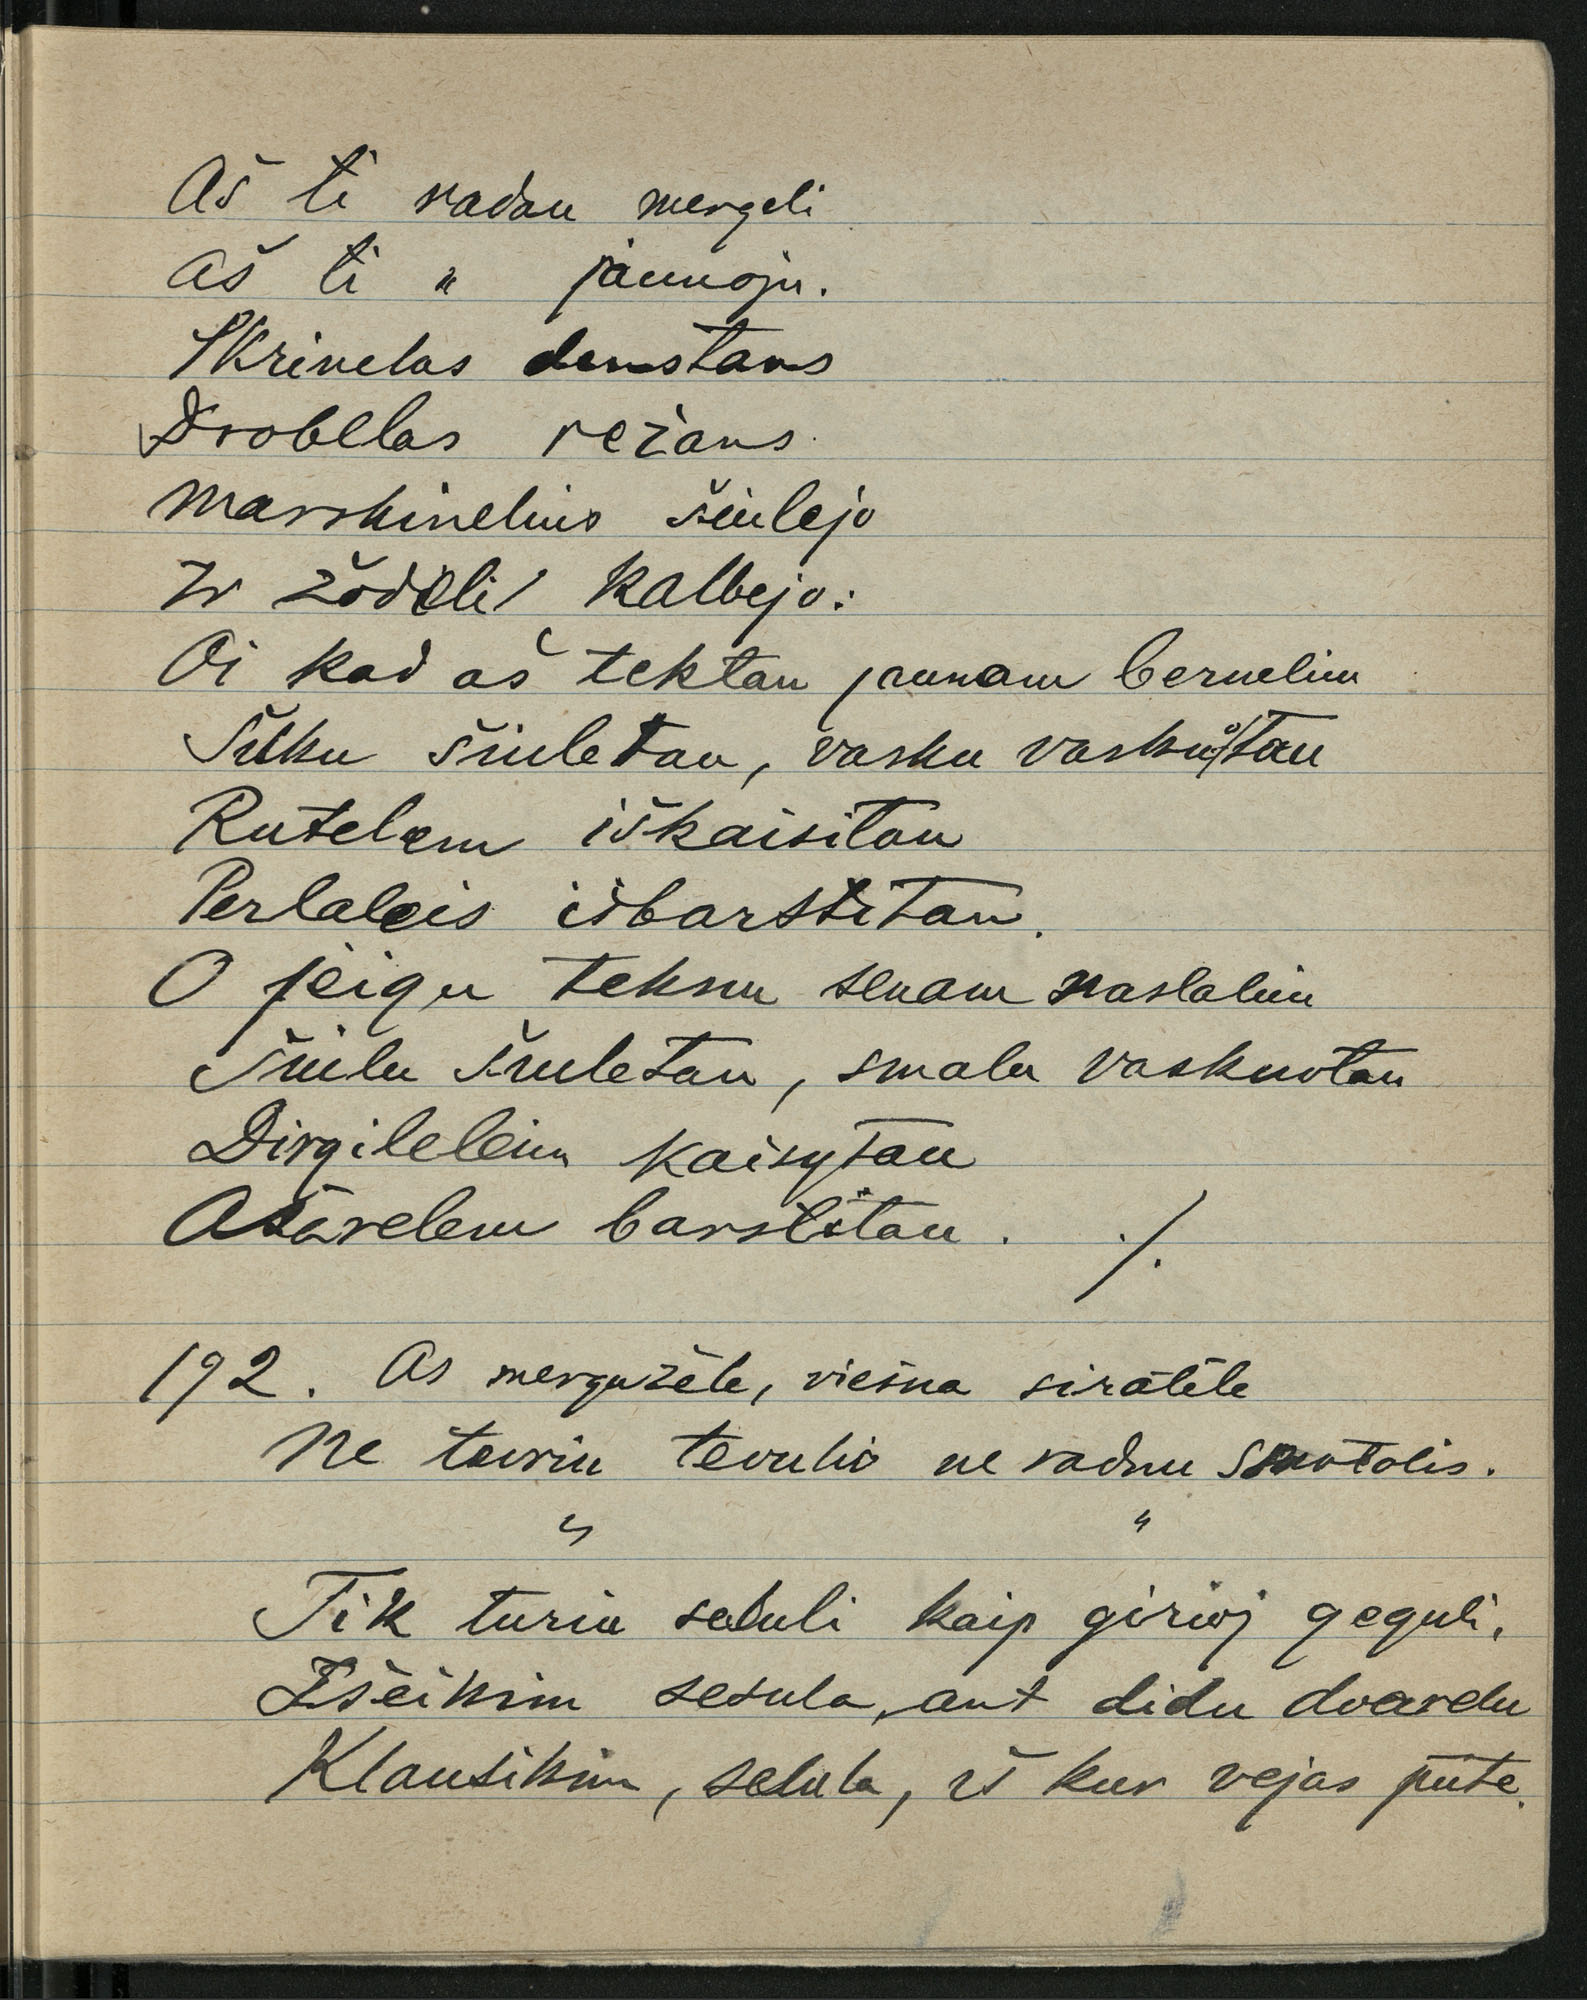 Aš ti radau mergeli
Aš ti " jaunoju.
Skrinelas demstans
Drobelas režans
Marškinelius šiulejo
Ir žodeli kalbejo:
Oi kad aš tektau jaunam berneliu
Šilku šiuletau, vasku vaskůtau
Rutelem iškaisitau
Perlaleis išbarstitau.
O jeigu teknu senam naslaliu
Šiulu šiuletau, smala vaskuotau
Dirgileleim kaisytau
Ašarelem barstitau. ./.
192. As mergužėle, viešna siratėle
Ne turiu tevulio ne radnu smotolis.
" "
Tik turiu seduli kaip girioj geguli.
Išeikim sesula, ant didu dvarelu
Klausikim, sesula, iš kur vejas pūte.